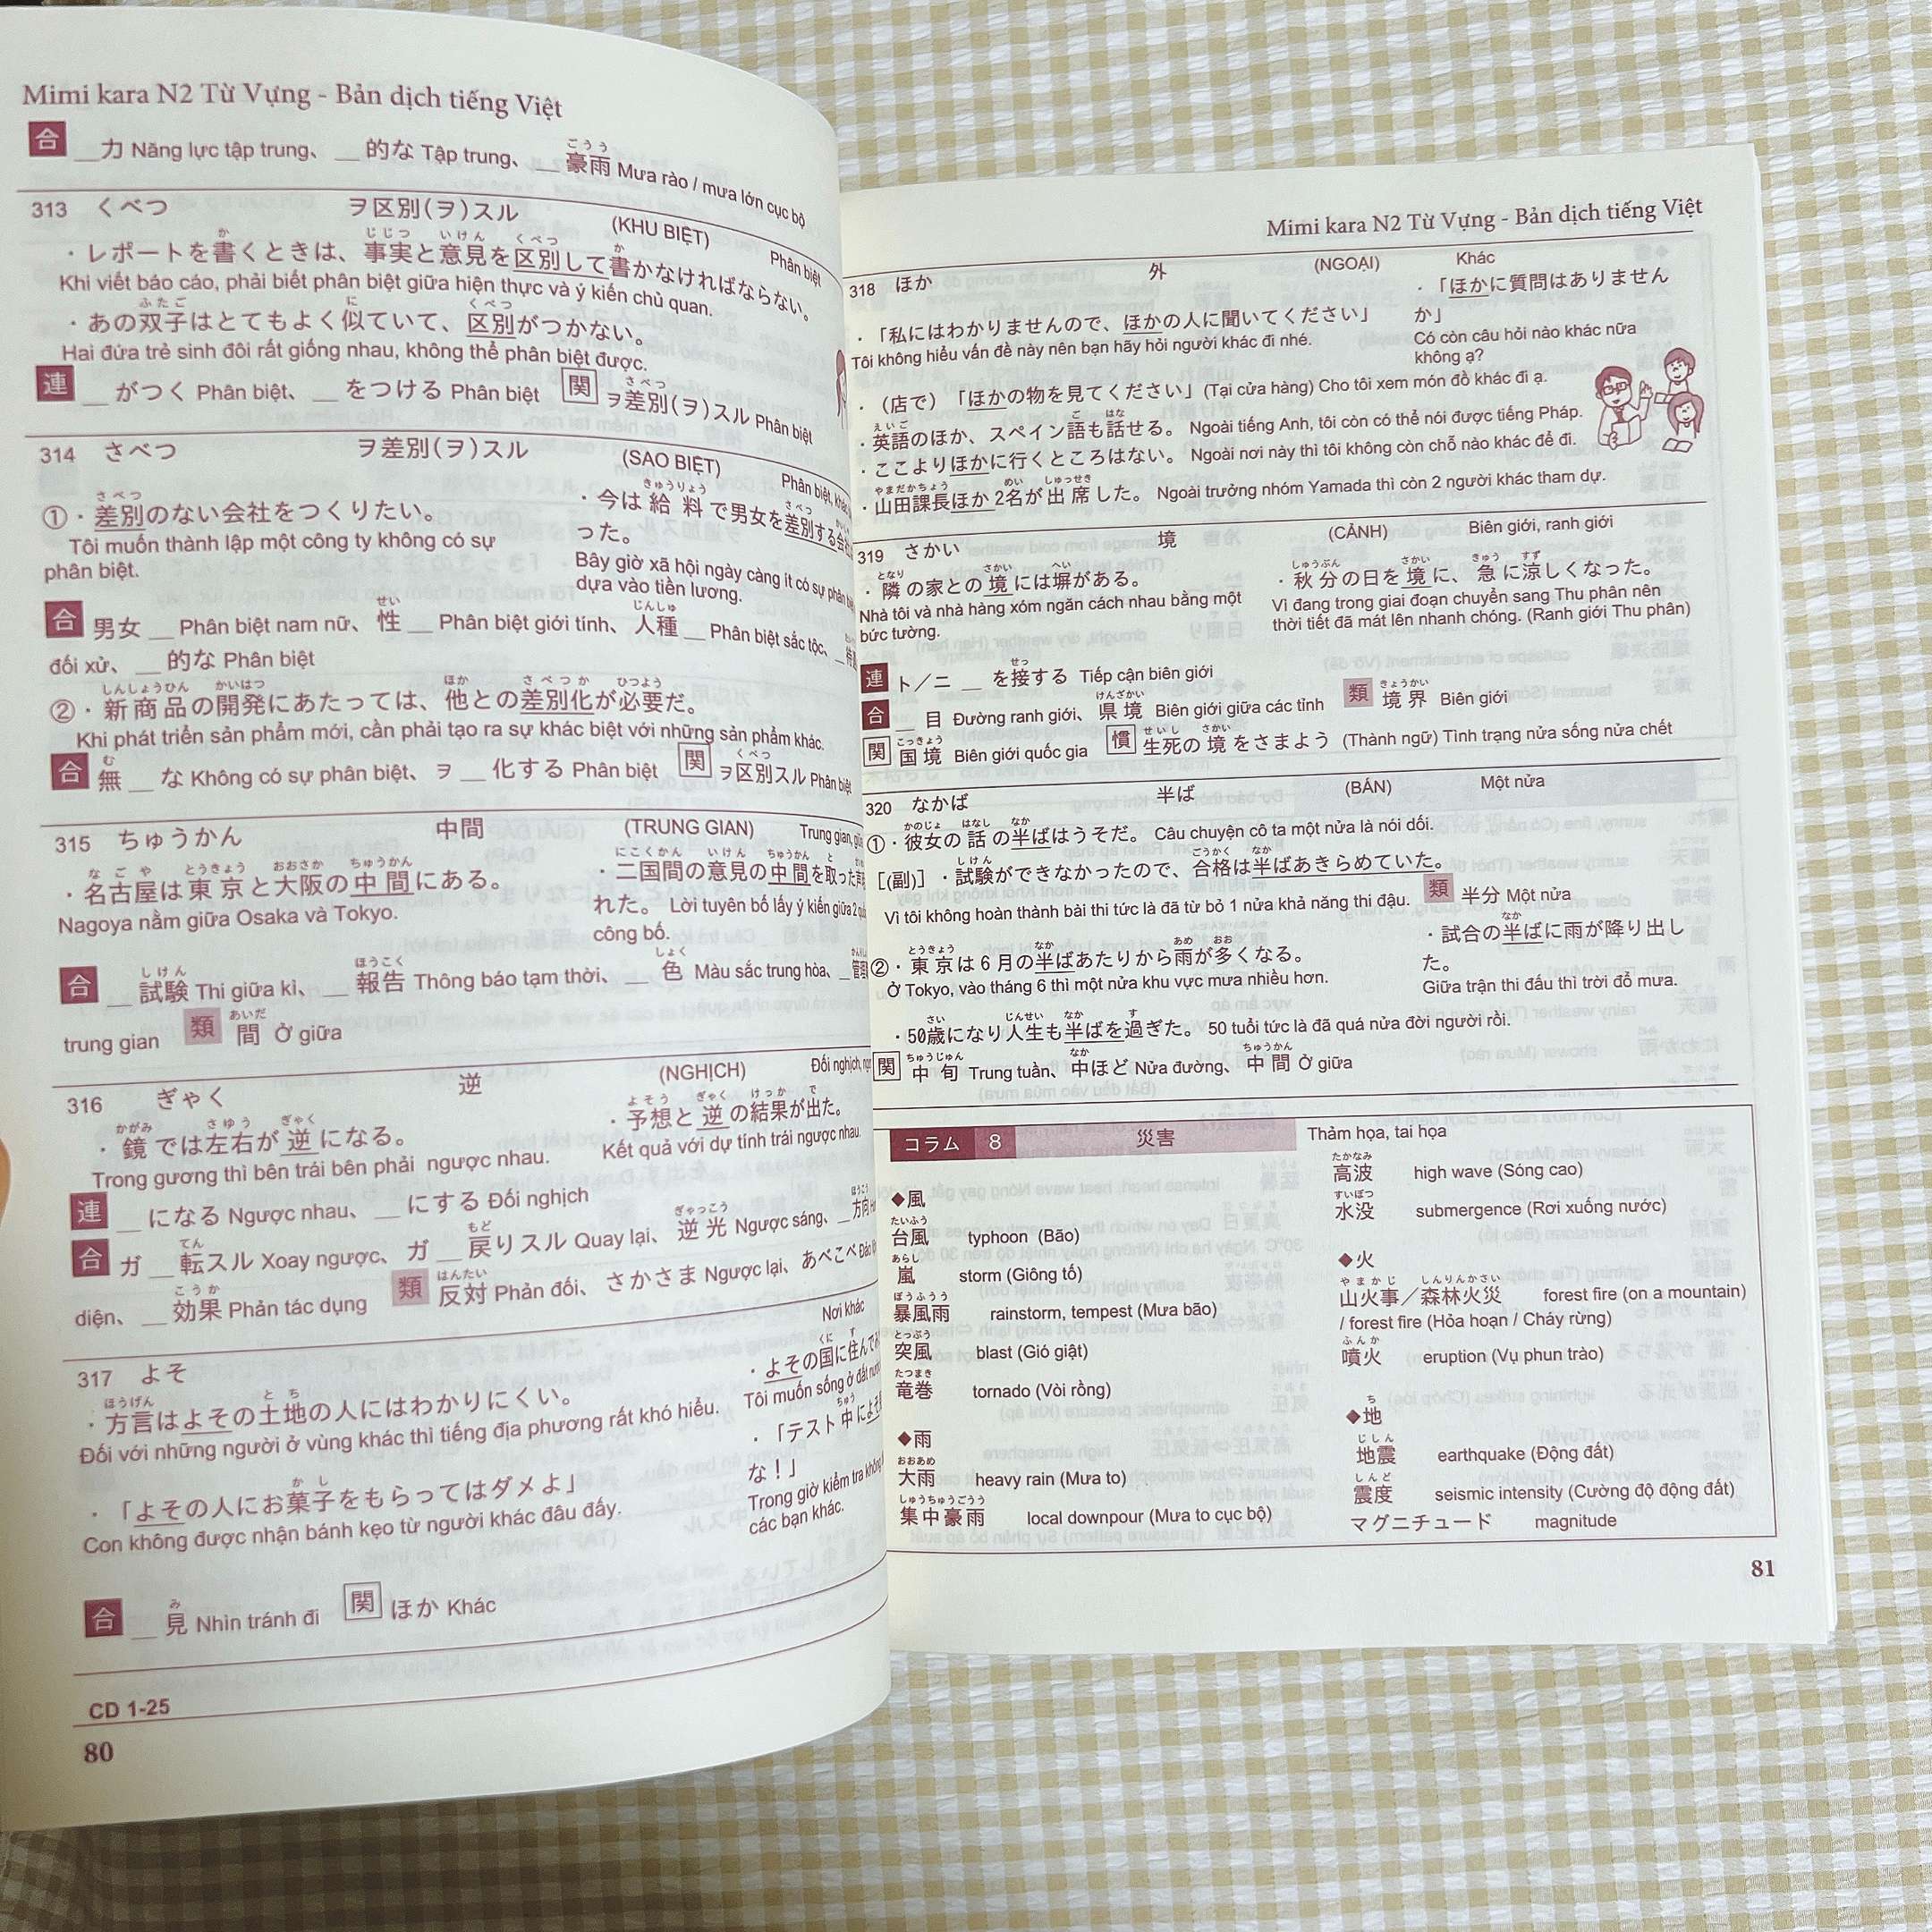 Mimi kara N2 Từ Vựng - Bản dịch tiếng Việt
合 __力 Năng lực tập trung、 __ 的な Tập trung、 __ 豪雨 Mưa rào / mưa lớn cục bộ
ごうう
313 くべつ ヲ区別(ヲ)スル (KHU BIỆT) Phân biệt
か じじつ いけん くべつ か
・レポートを書くときは、事実と意見を区別して書かなければならない。
Khi viết báo cáo, phải biết phân biệt giữa hiện thực và ý kiến chủ quan.
ふたご に くべつ
・あの双子はとてもよく似ていて、区別がつかない。
Hai đứa trẻ sinh đôi rất giống nhau, không thể phân biệt được.
連 __ がつく Phân biệt、 __ をつける Phân biệt 関 ヲ差別(ヲ)スル Phân biệt
さべつ
314 さべつ ヲ差別(ヲ)スル (SAO BIỆT) Phân biệt,
さべつ
①・差別のない会社をつくりたい。
Tôi muốn thành lập một công ty không có sự
phân biệt.
きゅうりょう さべつ
・今は給料で男女を差別する会
った。
Bây giờ xã hội ngày càng ít có sự phân biệt
dựa vào tiền lương.
せい じんしゅ
合 男女 __ Phân biệt nam nữ、 性 __ Phân biệt giới tính、 人種 __ Phân biệt sắc tộc、 __
đối xử、 __ 的な Phân biệt
しんしょうひん かいはつ ほか さべつか ひつよう
②・新商品の開発にあたっては、他との差別化が必要だ。
Khi phát triển sản phẩm mới, cần phải tạo ra sự khác biệt với những sản phẩm khác.
む くべつ
合 無 __ な Không có sự phân biệt、 ヲ __ 化する Phân biệt 関 ヲ区別スル Phân biệt
315 ちゅうかん 中間 (TRUNG GIAN) Trung gian,
なごや とうきょう おおさか ちゅうかん
・名古屋は東京と大阪の中間にある。
Nagoya nằm giữa Osaka và Tokyo.
にこくかん いけん ちゅうかん と
・二国間の意見の中間を取った
れた。 Lời tuyên bố lấy ý kiến giữa 2
công bố.
しけん ほうこく しょく
合 __ 試験 Thi giữa kì、 __ 報告 Thông báo tạm thời、 __ 色 Màu sắc trung hòa、 __
trung gian 類 間 Ở giữa
あいだ
316 ぎゃく 逆 (NGHỊCH) Đối nghịch,
かがみ さゆう ぎゃく
・鏡では左右が逆になる。
Trong gương thì bên trái bên phải ngược nhau.
よそう ぎゃく けっか で
・予想と逆の結果が出た。
Kết quả với dự tính trái ngược nhau.
連 __ になる Ngược nhau、 __ にする Đối nghịch
てん もど ぎゃっこう ほうこう
合 ガ __ 転スル Xoay ngược、 ガ __ 戻りスル Quay lại、 逆光 Ngược sáng、 __ 方向
こうか はんたい
diện、 __ 効果 Phản tác dụng 類 反対 Phản đối、 さかさま Ngược lại、 あべこべ
317 よそ Nơi khác
ほうげん とち
・方言はよその土地の人にはわかりにくい。
Đối với những người ở vùng khác thì tiếng địa phương rất khó hiểu.
くに す
・よその国に住んで
Tôi muốn sống ở đất
かし
・「よその人にお菓子をもらってはダメよ」
Con không được nhận bánh kẹo từ người khác đâu đấy.
ちゅう
・「テスト中によそ
な!」
Trong giờ kiểm tra
các bạn khác.
み
合 __ 見 Nhìn tránh đi 関 ほか Khác
CD 1-25
80
Mimi kara N2 Từ Vựng - Bản dịch tiếng Việt
318 ほか 外 (NGOẠI) Khác
・「私にはわかりませんので、ほかの人に聞いてください」
Tôi không hiểu vấn đề này nên bạn hãy hỏi người khác đi nhé.
・「ほかに質問はありません
か」
Có còn câu hỏi nào khác nữa
không ạ?
・(店で)「ほかの物を見てください」(Tại cửa hàng) Cho tôi xem món đồ khác đi ạ.
えいご ご はな
・英語のほか、スペイン語も話せる。 Ngoài tiếng Anh, tôi còn có thể nói được tiếng Pháp.
・ここよりほかに行くところはない。 Ngoài nơi này thì tôi không còn chỗ nào khác để đi.
やまだかちょう めい しゅっせき
・山田課長ほか2名が出席した。 Ngoài trưởng nhóm Yamada thì còn 2 người khác tham dự.
319 さかい 境 (CẢNH) Biên giới, ranh giới
となり さかい へい
・隣の家との境には塀がある。
Nhà tôi và nhà hàng xóm ngăn cách nhau bằng một
bức tường.
しゅうぶん さかい きゅう すず
・秋分の日を境に、急に涼しくなった。
Vì đang trong giai đoạn chuyển sang Thu phân nên
thời tiết đã mát lên nhanh chóng. (Ranh giới Thu phân)
せっ
連 ト/ニ __ を接する Tiếp cận biên giới
けんざかい きょうかい
合 __ 目 Đường ranh giới、 県境 Biên giới giữa các tỉnh 類 境界 Biên giới
こっきょう せいし さかい
関 国境 Biên giới quốc gia 慣 生死の境をさまよう (Thành ngữ) Tình trạng nửa sống nửa chết
320 なかば 半ば (BÁN) Một nửa
かのじょ はなし なか
①・彼女の話の半ばはうそだ。 Câu chuyện cô ta một nửa là nói dối.
しけん ごうかく なか
[(副)]・試験ができなかったので、合格は半ばあきらめていた。
Vì tôi không hoàn thành bài thi tức là đã từ bỏ 1 nửa khả năng thi đậu. 類 半分 Một nửa
とうきょう なか あめ おお
②・東京は6月の半ばあたりから雨が多くなる。
Ở Tokyo, vào tháng 6 thì một nửa khu vực mưa nhiều hơn.
なか
・試合の半ばに雨が降り出し
た。
Giữa trận thi đấu thì trời đổ mưa.
さい じんせい なか す
・50歳になり人生も半ばを過ぎた。 50 tuổi tức là đã quá nửa đời người rồi.
ちゅうじゅん なか ちゅうかん
関 中旬 Trung tuần、中ほど Nửa đường、中間 Ở giữa
コラム 8 災害 Thảm họa, tai họa
◆風
たいふう
台風 typhoon (Bão)
あらし
嵐 storm (Giông tố)
ぼうふうう
暴風雨 rainstorm, tempest (Mưa bão)
とっぷう
突風 blast (Gió giật)
たつまき
竜巻 tornado (Vòi rồng)
◆雨
おおあめ
大雨 heavy rain (Mưa to)
しゅうちゅうごうう
集中豪雨 local downpour (Mưa to cục bộ)
たかなみ
高波 high wave (Sóng cao)
すいぼつ
水没 submergence (Rơi xuống nước)
◆火
やまかじ しんりんかさい
山火事/森林火災 forest fire (on a mountain)
/ forest fire (Hỏa hoạn / Cháy rừng)
ふんか
噴火 eruption (Vụ phun trào)
ち
◆地
じしん
地震 earthquake (Động đất)
しんど
震度 seismic intensity (Cường độ động đất)
マグニチュード magnitude
81